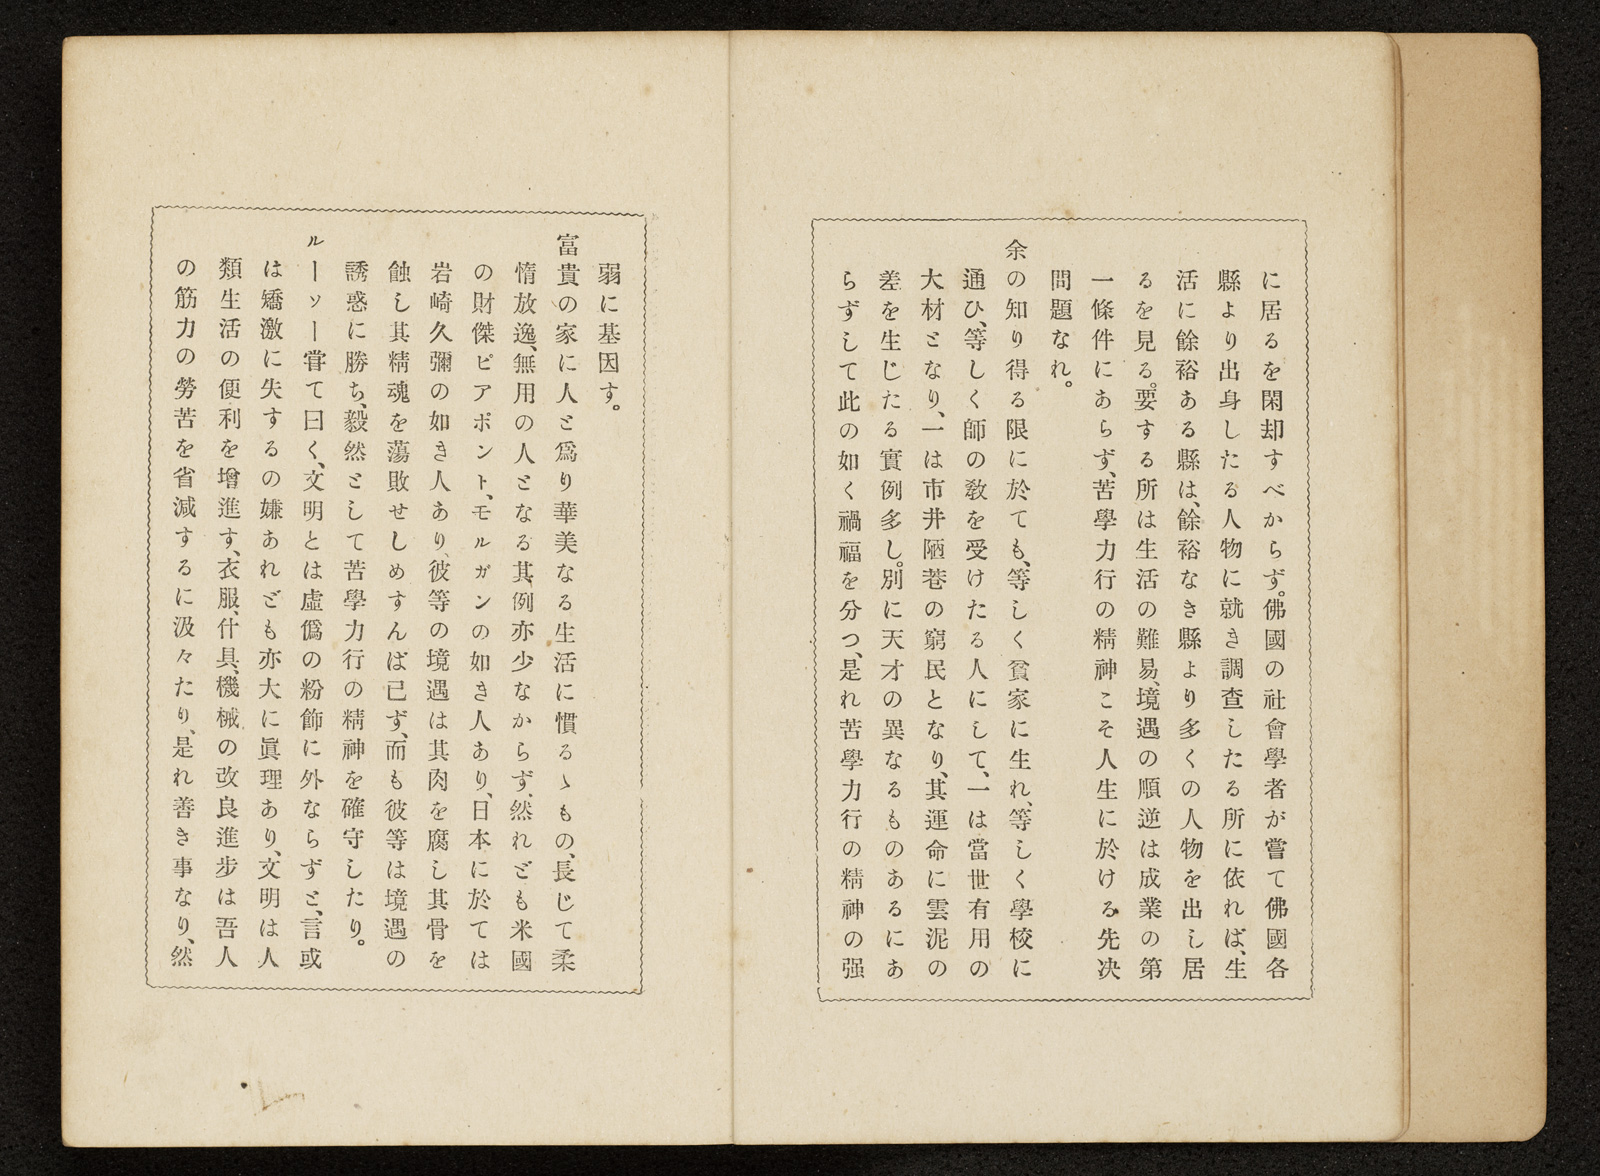 に居るを閑却すべからず。佛國の社會學者が嘗て佛國各
縣より出身したる人物に就き調査したる所に依れば、生
活に餘裕ある縣は、餘裕なき縣より多くの人物を出し居
るを見る。要する所は生活の難易、境遇の順逆は成業の第
一條件にあらず、苦學力行の精神こそ人生に於ける先决
問題なれ。
余の知り得る限に於ても、等しく貧家に生れ、等しく學校に
通ひ、等しく師の敎を受けたる人にして、一は當世有用の
大材となり、一は市井陋巷の窮民となり、其運命に雲泥の
差を生じたる實例多し。別に天才の異なるものあるにあ
らずして此の如く禍福を分つ、是れ苦學力行の精神の强
弱に基因す。
富貴の家に人と爲り華美なる生活に慣るゝもの、長じて柔
惰放逸、無用の人となる其例亦少なからず、然れども米國
の財傑ピアポント、モルガンの如き人あり、日本に於ては
岩崎久彌の如き人あり、彼等の境遇は其肉を腐し其骨を
蝕し其精魂を蕩敗せしめずんば已ず、而も彼等は境遇の
誘惑に勝ち、毅然として苦學力行の精神を確守したり。
ルーソー嘗て曰く、文明とは虛僞の粉飾に外ならずと、言或
は矯激に失するの嫌あれども亦大に眞理あり、文明は人
類生活の便利を增進す、衣服、什具、機械の改良進步は吾人
の筋力の勞苦を省減するに汲々たり、是れ善き事なり、然